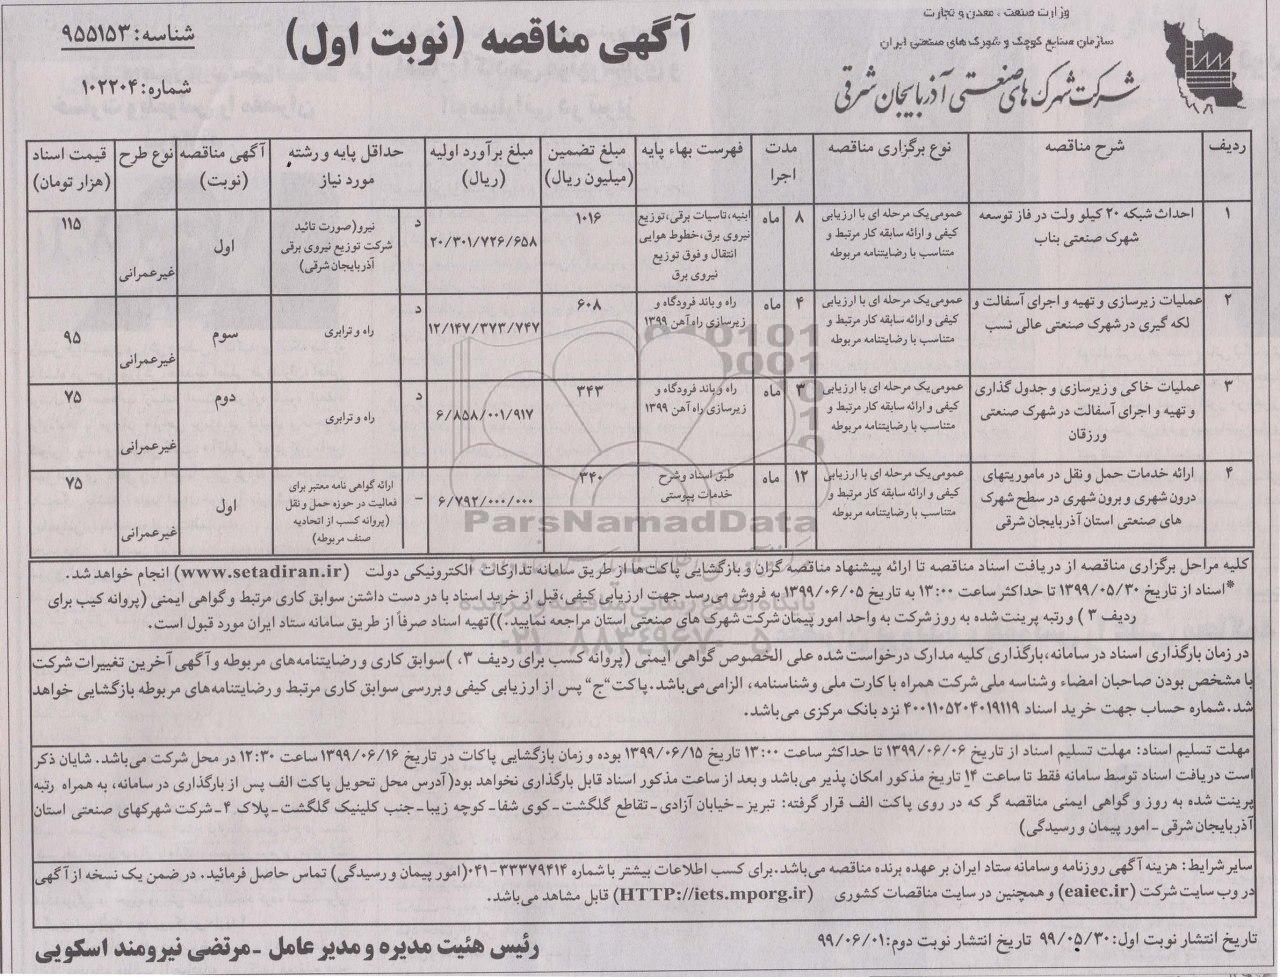 وزارت صنعت ، معدن و تجارت
سازمان صنایع کوچک و شهرک های صنعتی ایران
شرکت شهرک های صنعتی آذربایجان شرقی
آگهی مناقصه (نوبت اول)
شناسه: ۹۵۵۱۵۳
شماره: ۱۰۲۲۰۴
ردیف | شرح مناقصه | نوع برگزاری مناقصه | مدت اجرا | فهرست بهاء پایه | مبلغ تضمین (میلیون ریال) | مبلغ برآورد اولیه (ریال) | حداقل پایه و رشته مورد نیاز | آگهی مناقصه (نوبت) | نوع طرح | قیمت اسناد (هزار تومان)
۱ | احداث شبکه ۲۰ کیلو ولت در فاز توسعه شهرک صنعتی بناب | عمومی یک مرحله ای با ارزیابی کیفی و ارائه سابقه کار مرتبط و متناسب با رضایتنامه مربوطه | ۸ ماه | ابنیه، تاسیات برقی، توزیع نیروی برق، خطوط هوایی انتقال و فوق توزیع نیروی برق | ۱۰۱۶ | ۲۰/۳۰۱/۷۲۶/۶۵۸ | د | نیرو(صورت تائید شرکت توزیع نیروی برقی آذربایجان شرقی) | اول | غیرعمرانی | ۱۱۵
۲ | عملیات زیرسازی و تهیه و اجرای آسفالت و لکه گیری در شهرک صنعتی عالی نسب | عمومی یک مرحله ای با ارزیابی کیفی و ارائه سابقه کار مرتبط و متناسب با رضایتنامه مربوطه | ۴ ماه | راه و باند فرودگاه و زیرسازی راه آهن ۱۳۹۹ | ۶۰۸ | ۱۲/۱۴۷/۳۷۳/۷۴۷ | د | راه و ترابری | سوم | غیرعمرانی | ۹۵
۳ | عملیات خاکی و زیرسازی و جدول گذاری و تهیه و اجرای آسفالت در شهرک صنعتی ورزقان | عمومی یک مرحله ای با ارزیابی کیفی و ارائه سابقه کار مرتبط و متناسب با رضایتنامه مربوطه | ۳ ماه | راه و باند فرودگاه و زیرسازی راه آهن ۱۳۹۹ | ۳۴۳ | ۶/۸۵۸/۰۰۱/۹۱۷ | د | راه و ترابری | دوم | غیرعمرانی | ۷۵
۴ | ارائه خدمات حمل و نقل در ماموریتهای درون شهری و برون شهری در سطح شهرک های صنعتی استان آذربایجان شرقی | عمومی یک مرحله ای با ارزیابی کیفی و ارائه سابقه کار مرتبط و متناسب با رضایتنامه مربوطه | ۱۲ ماه | طبق اسناد و شرح خدمات پیوستی | ۳۴۰ | ۶/۷۹۲/۰۰۰/۰۰۰ | – | ارائه گواهی نامه معتبر برای فعالیت در حوزه حمل و نقل (پروانه کسب از اتحادیه صنف مربوطه) | اول | غیرعمرانی | ۷۵
ParsNamadData
کلیه مراحل برگزاری مناقصه از دریافت اسناد مناقصه تا ارائه پیشنهاد مناقصه گران و بازگشایی پاکت‌ها از طریق سامانه تدارکات الکترونیکی دولت (www.setadiran.ir) انجام خواهد شد.
*اسناد از تاریخ ۱۳۹۹/۰۵/۳۰ تا حداکثر ساعت ۱۳:۰۰ به تاریخ ۱۳۹۹/۰۶/۰۵ به فروش می‌رسد جهت ارزیابی کیفی، قبل از خرید اسناد با در دست داشتن سوابق کاری مرتبط و گواهی ایمنی (پروانه کیب برای
ردیف ۳ ) و رتبه پرینت شده به روز شرکت به واحد امور پیمان شرکت شهرک های صنعتی استان مراجعه نمایید.))تهیه اسناد صرفاً از طریق سامانه ستاد ایران مورد قبول است.
در زمان بارگذاری اسناد در سامانه، بارگذاری کلیه مدارک درخواست شده علی الخصوص گواهی ایمنی (پروانه کسب برای ردیف ۳، )سوابق کاری و رضایتنامه‌های مربوطه و آگهی آخرین تغییرات شرکت
با مشخص بودن صاحبان امضاء و شناسه ملی شرکت همراه با کارت ملی و شناسنامه، الزامی می‌باشد. پاکت "ج" پس از ارزیابی کیفی و بررسی سوابق کاری مرتبط و رضایتنامه‌های مربوطه بازگشایی خواهد
شد. شماره حساب جهت خرید اسناد ۴۰۰۱۱۰۵۲۰۴۰۱۹۱۱۹ نزد بانک مرکزی می‌باشد.
مهلت تسلیم اسناد: مهلت تسلیم اسناد از تاریخ ۱۳۹۹/۰۶/۰۶ تا حداکثر ساعت ۱۳:۰۰ تاریخ ۱۳۹۹/۰۶/۱۵ بوده و زمان بازگشایی پاکات در تاریخ ۱۳۹۹/۰۶/۱۶ ساعت ۱۲:۳۰ در محل شرکت می‌باشد. شایان ذکر
است دریافت اسناد توسط سامانه فقط تا ساعت ۱۴ تاریخ مذکور امکان پذیر می‌باشد و بعد از ساعت مذکور اسناد قابل بارگذاری نخواهد بود(آدرس محل تحویل پاکت الف پس از بارگذاری در سامانه، به همراه رتبه
پرینت شده به روز و گواهی ایمنی مناقصه گر که در روی پاکت الف قرار گرفته: تبریز - خیابان آزادی - تقاطع گلگشت - کوی شفا - کوچه زیبا - جنب کلینیک گلگشت - پلاک ۴ - شرکت شهرکهای صنعتی استان
آذربایجان شرقی - امور پیمان و رسیدگی)
سایر شرایط: هزینه آگهی روزنامه و سامانه ستاد ایران بر عهده برنده مناقصه می‌باشد. برای کسب اطلاعات بیشتر با شماره ۳۳۳۷۹۴۱۴-۰۴۱ (امور پیمان و رسیدگی) تماس حاصل فرمائید. در ضمن یک نسخه از آگهی
در وب سایت شرکت (eaiec.ir) و همچنین در سایت مناقصات کشوری (HTTP://iets.mporg.ir) قابل مشاهد می‌باشد.
تاریخ انتشار نوبت اول: ۹۹/۰۵/۳۰ تاریخ انتشار نوبت دوم: ۹۹/۰۶/۰۱
رئیس هئیت مدیره و مدیر عامل - مرتضی نیرومند اسکویی